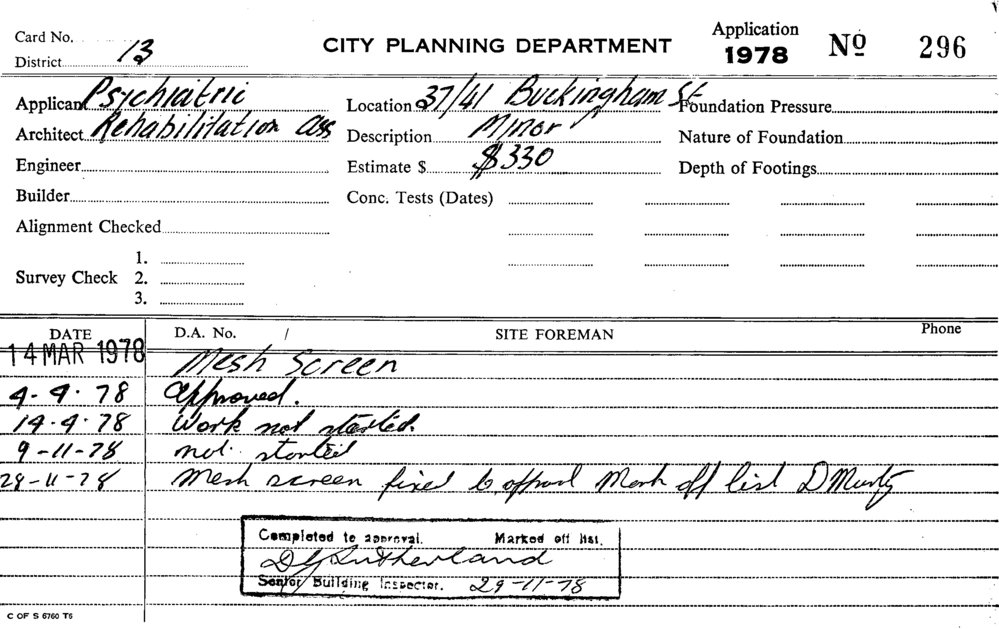 Card No.
District 13
CITY PLANNING DEPARTMENT
Application 1978 Nº 296
Applicant Psychiatric
Location 37/41 Buckingham St
Foundation Pressure
Architect Rehabilitation Ass
Description Minor
Nature of Foundation
Engineer
Estimate $ $330
Depth of Footings
Builder
Conc. Tests (Dates)
Alignment Checked
Survey Check 1.
2.
3.
DATE D.A. No. / SITE FOREMAN Phone
14 MAR 1978 Mesh Screen
4-4.78 Approved.
14.4.78 Work not started.
9-11-78 not started
28-11-78 Mesh screen fixed to Mark off list D
Completed to approval. Marked off list.
D Sutherland
Senior Building Inspector. 29-11-78
C OF S 6760 T6